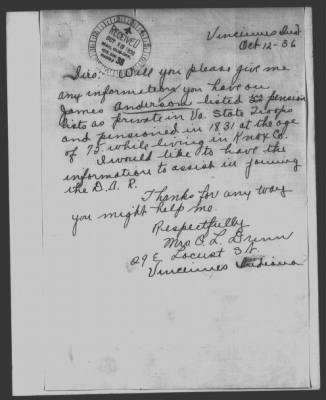 Vincennes Ind
Oct 12-36
RECEIVED
OCT 13 1936
Sirs: Will you please give me
any information you have on
James Anderson listed on pension
lists as private in Va. State Troops
and pensioned in 1831 at the age
of 75. while living in Knox Co.
I would like to have the
information to assist in joining
the D. A. R.
Thanks for any way
you might help me.
Respectfully
Mrs O. L. Dunn
29 E. Locust St.
Vincennes Indiana